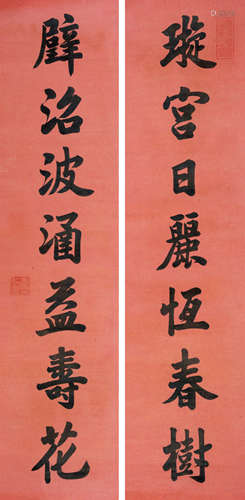 璇宮日麗恆春樹
璧沼波涵益壽花